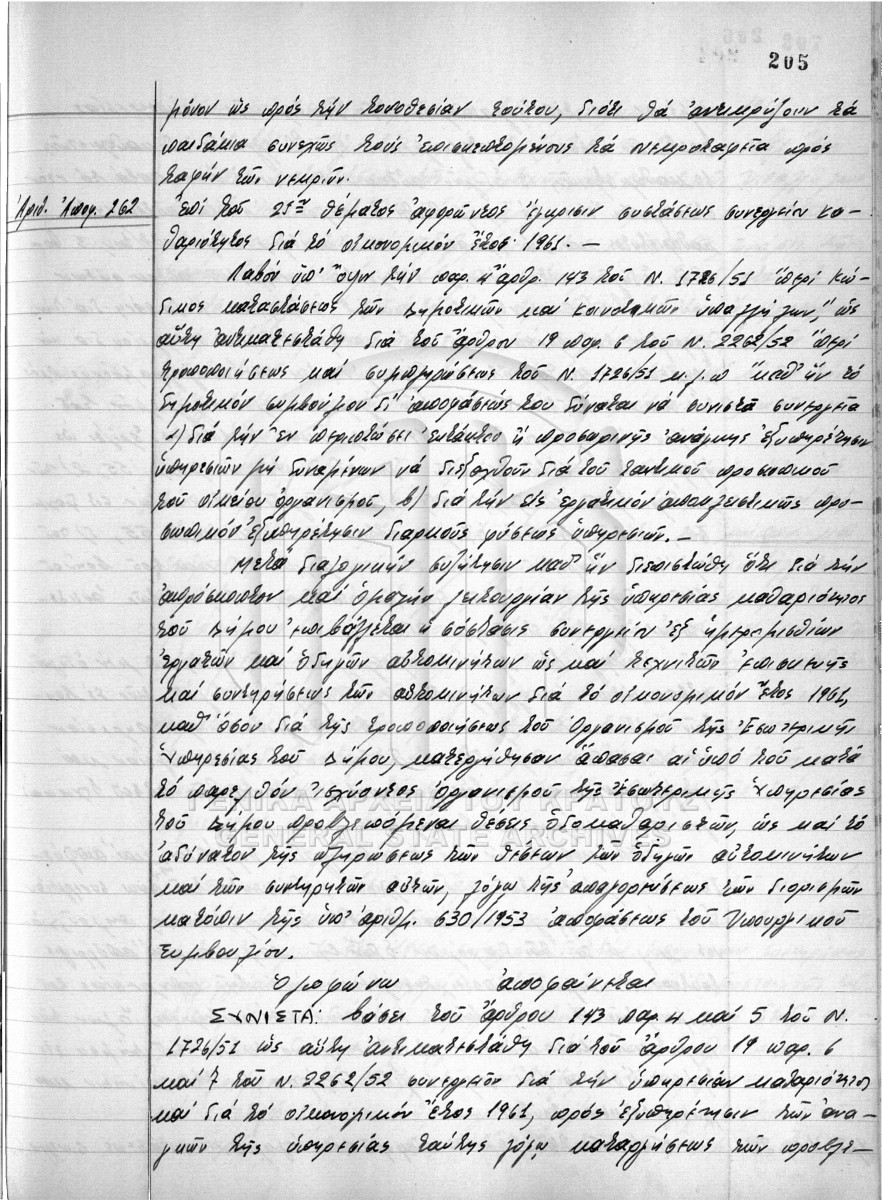 205
μόνον ὡς πρός τήν τοποθεσίαν τούτου, διότι θά ἀντικρύζουν τά
παιδάκια συνεχῶς τούς ἐπισκεπτομένους τά νεκροταφεῖα πρός
ταφήν τῶν νεκρῶν.
Ἀριθ. Ἀποφ. 262
Ἐπί τοῦ 25ου θέματος ἀφορῶντος ἔγκρισιν συστάσεως συνεργείου κα-
θαριότητος διά τό οἰκονομικόν ἔτος 1961. —
Λαβόν ὑπ' ὄψιν τήν παρ. 4 ἄρθρ. 143 τοῦ Ν. 1726/51 "περί Κώ-
δικος καταστάσεως τῶν Δημοτικῶν καί Κοινοτικῶν ὑπαλλήλων," ὡς
αὕτη ἀντικατεστάθη διά τοῦ ἄρθρου 19 παρ. 6 τοῦ Ν. 2262/52 "περί
τροποποιήσεως καί συμπληρώσεως τοῦ Ν. 1726/51 κ.λ.π" καθ' ἥν τό
δημοτικόν συμβούλιον δι' ἀποφάσεώς του δύναται νά συνιστᾶ συνεργεῖα
α) διά τήν ἐν περιπτώσει ἐκτάκτου ἤ προσωρινῆς ἀνάγκης ἐξυπηρέτησιν
ὑπηρεσιῶν μή δυναμένων νά διεξαχθοῦν διά τοῦ τακτικοῦ προσωπικοῦ
τοῦ οἰκείου ὀργανισμοῦ, β) διά τήν εἰς ἐργατικόν ἀποκλειστικῶς προ-
σωπικόν ἐξυπηρέτησιν διαρκοῦς φύσεως ὑπηρεσιῶν. —
Μετά διαλογικήν συζήτησιν καθ' ἥν διεπιστώθη ὅτι διά τήν
ἀπρόσκοπτον καί ὁμαλήν λειτουργίαν τῆς ὑπηρεσίας καθαριότητος
τοῦ Δήμου ἐπιβάλλεται ἡ σύστασις συνεργείου ἐξ ἡμερομισθίων
ἐργατῶν καί ὁδηγῶν αὐτοκινήτων ὡς καί τεχνιτῶν ἐπισκευῆς
καί συντηρήσεως τῶν αὐτοκινήτων διά τό οἰκονομικόν ἔτος 1961,
καθ' ὅσον διά τῆς τροποποιήσεως τοῦ Ὀργανισμοῦ τῆς Ἐσωτερικῆς
Ὑπηρεσίας τοῦ Δήμου, κατεργήθησαν ἅπασαι αἱ ὑπό τοῦ κατά
τό παρελθόν ἰσχύοντος ὀργανισμοῦ τῆς Ἐσωτερικῆς Ὑπηρεσίας
τοῦ Δήμου προβλεπόμεναι θέσεις ὁδοκαθαριστῶν, ὡς καί τό
ἀδύνατον τῆς πληρώσεως τῶν θέσεων τῶν ὁδηγῶν αὐτοκινήτων
καί τῶν συντηρητῶν αὐτῶν, λόγω τῆς ἀπαγορεύσεως τῶν διορισμῶν
κατόπιν τῆς ὑπ' ἀριθμ. 630/1953 ἀποφάσεως τοῦ Ὑπουργικοῦ
Συμβουλίου.
Ὁμοφώνως ἀποφαίνεται
ΣΥΝΙΣΤΑ: βάσει τοῦ ἄρθρου 143 παρ. 4 καί 5 τοῦ Ν.
1726/51 ὡς αὕτη ἀντικατεστάθη διά τοῦ ἄρθρου 19 παρ. 6
καί 7 τοῦ Ν. 2262/52 συνεργεῖον διά τήν ὑπηρεσίαν καθαριότητος
καί διά τό οἰκονομικόν ἔτος 1961, πρός ἐξυπηρέτησιν τῶν ἀνα-
γκῶν τῆς ὑπηρεσίας ταύτης λόγω καταργήσεως τῶν προβλε-
ΓΕΝΙΚΑ ΑΡΧΕΙΑ ΤΟΥ ΚΡΑΤΟΥΣ
GENERAL STATE ARCHIVES